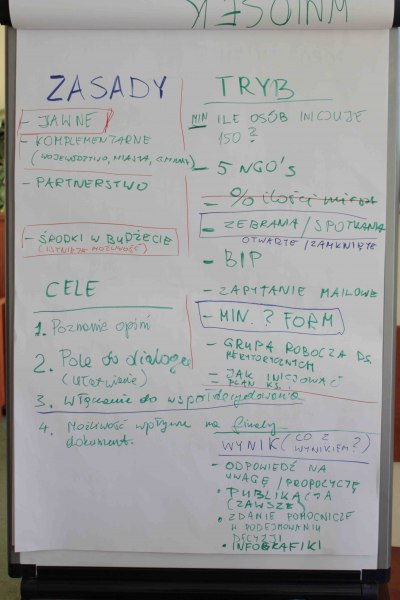 WNIOSEK
ZASADY
- JAWNE
- KOMPLEMENTARNE
(WOJEWÓDZTWO, MIASTA, GMINY)
- PARTNERSTWO
- ŚRODKI W BUDŻECIE
CELE
1. Poznanie opinii
2. Pole do dialogu
(ułatwienie)
3. Włączanie do współdecydowania
4. Możliwość wpływu na finalny
dokument.
TRYB
MIN ILE OSÓB INICJUJE
150?
- 5 NGO's
- % ilości mieszk
- ZEBRANIA/SPOTKANIA
OTWARTE/ZAMKNIĘTE
- BIP
- ZAPYTANIE MAILOWE
- MIN. ? FORM
- GRUPA ROBOCZA DS.
MERYTORYCZNYCH
- JAK INICJOWAĆ
= PLAN KS.
WYNIK (CO Z
WYNIKIEM?)
- ODPOWIEDŹ NA
UWAGĘ/PROPOZYCJĘ
• PUBLIKACJA
(ZAWSZE)
• ZDANIE POMOCNICZE
W PODEJMOWANIU
DECYZJI
• INFOGRAFIKI